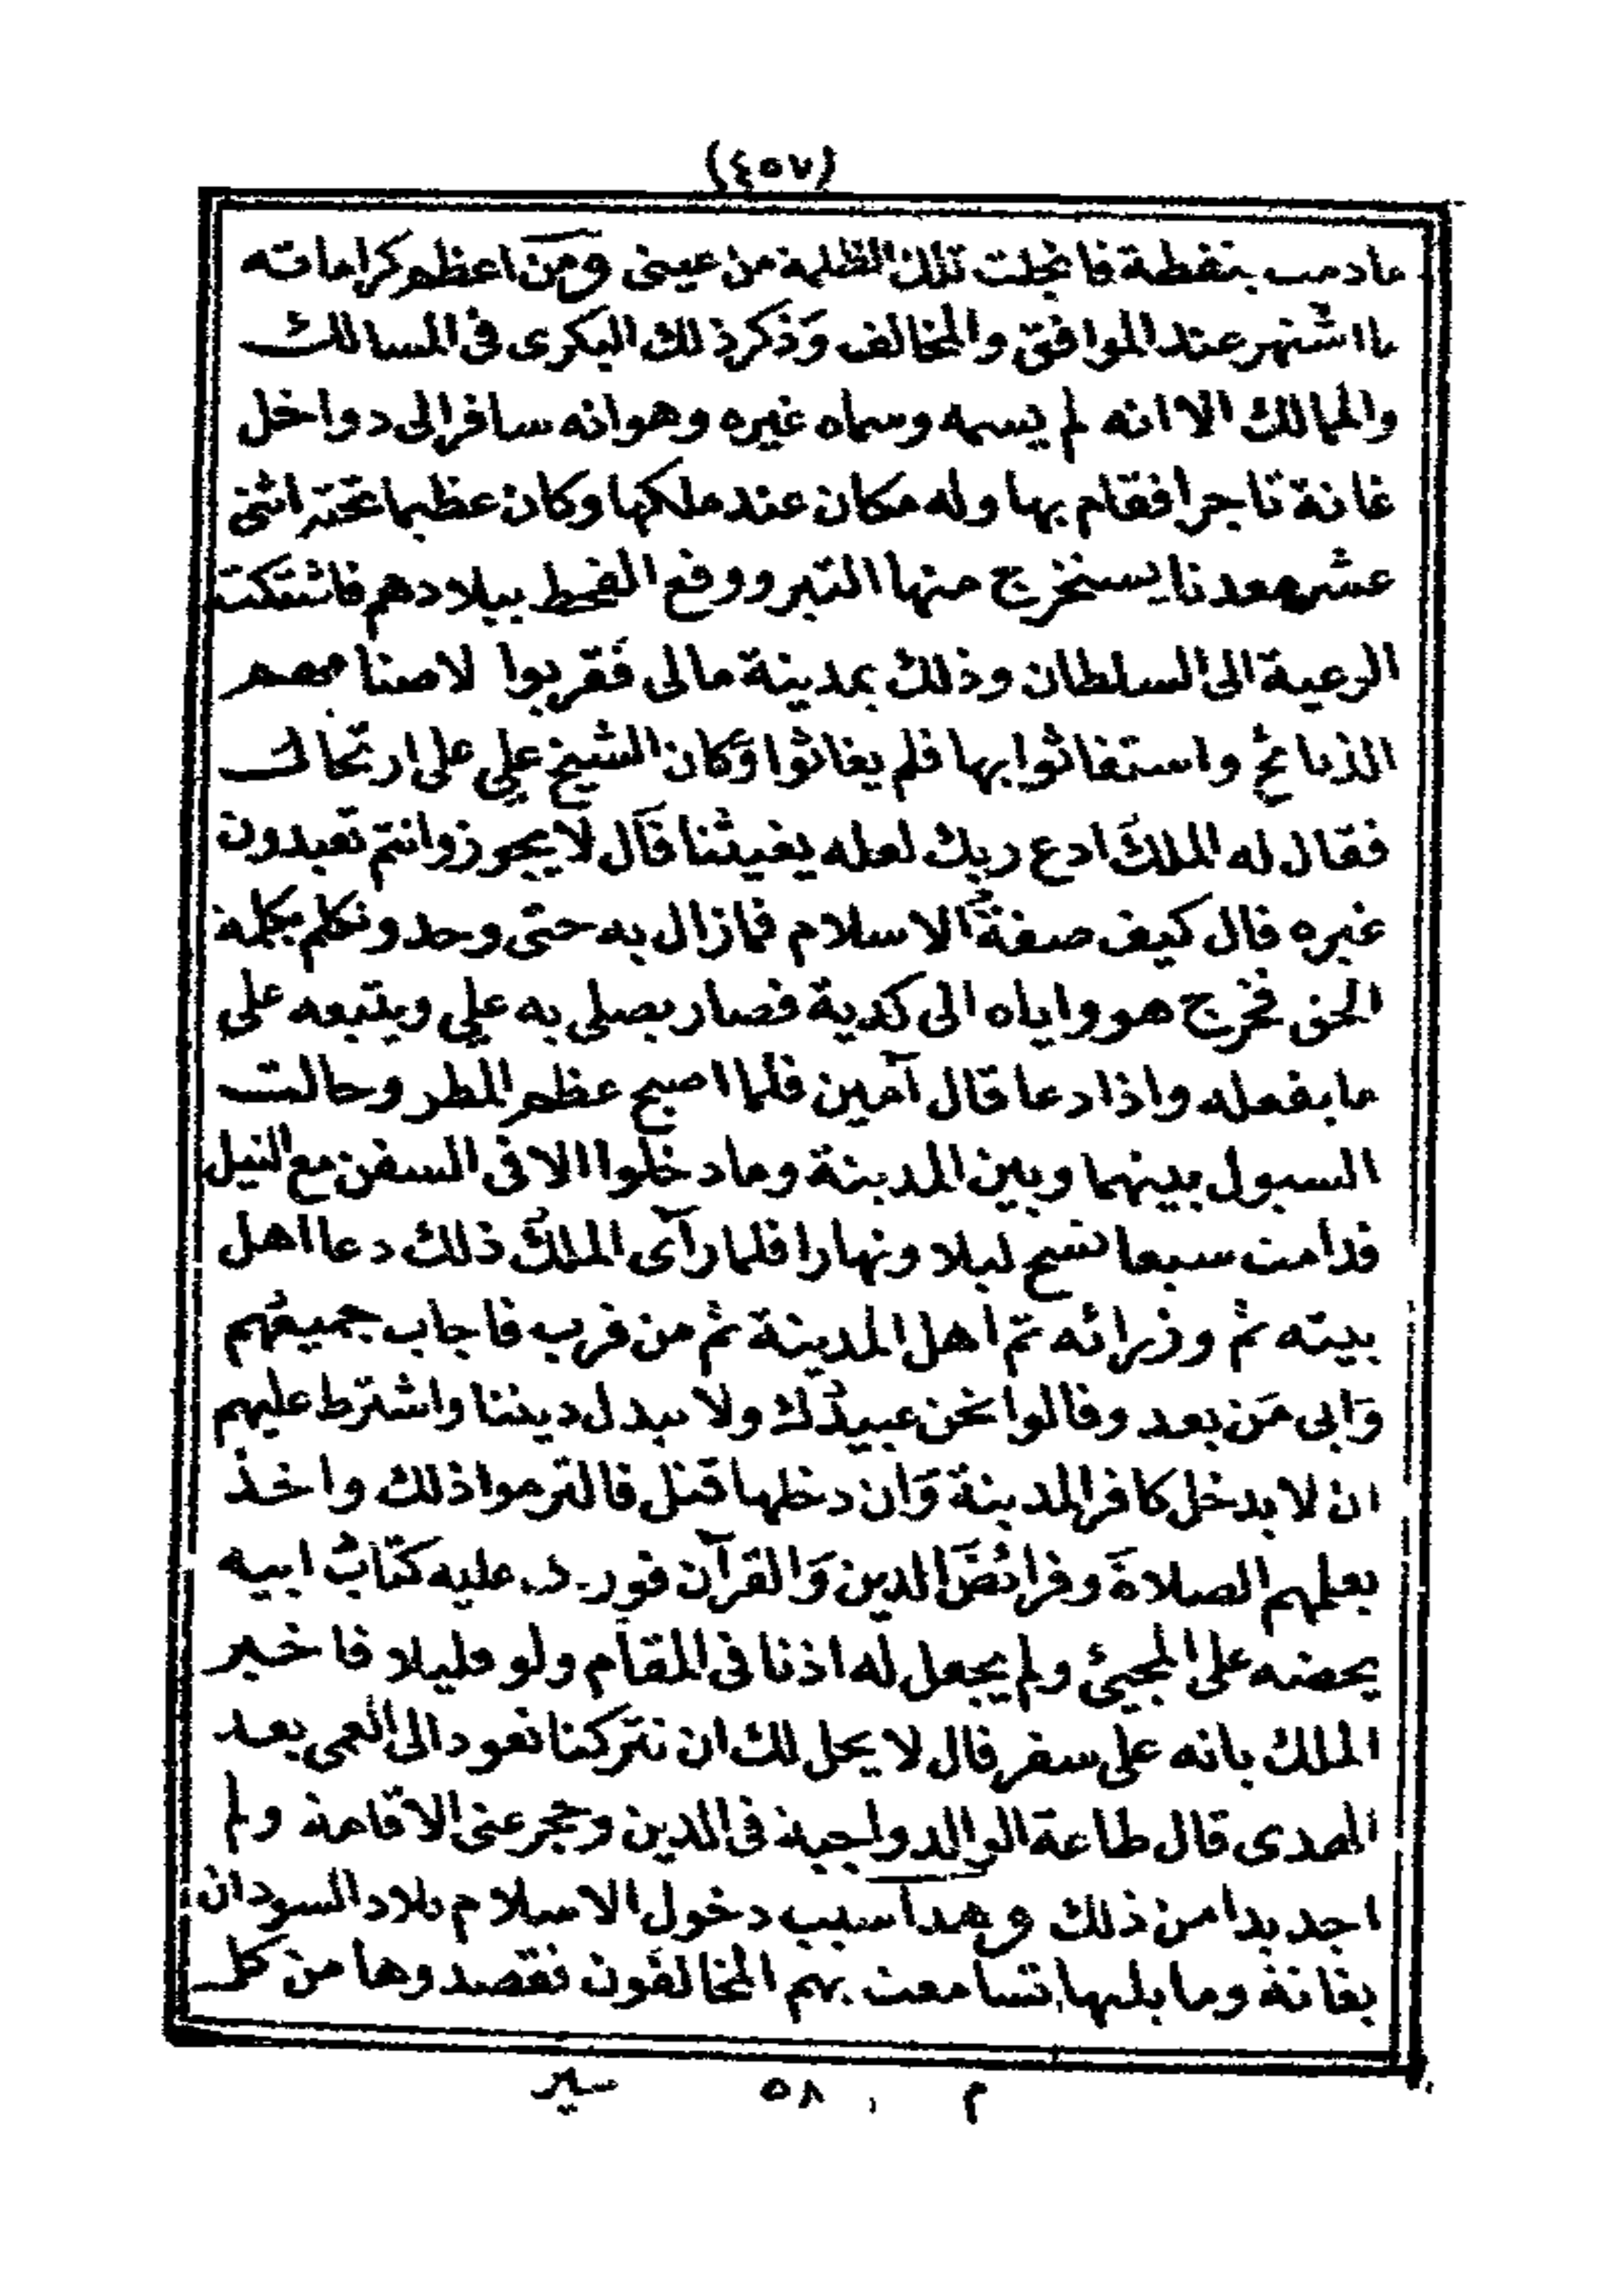 (٤٥٧)
مادمت بنقطة فانجلت تلك الظلمة من عينى ومن اعظم كراماته
ما اشتهر عند الموافق والمخالف وذكر ذلك البكرى فى المسالك
والممالك الا انه لم يسمه وسماه غيره وهو انه سافر الى دواخل
غانة تاجرا فقام بها وله مكان عند ملكها وكان عظيما تحته اثنى
عشر معدنا يستخرج منها التبر ووقع القحط ببلادهم فاشتكت
الرعية الى السلطان وذلك بمدينة مالى فقربوا لاصنامهم
الذبائح واستغاثوا بها فلم يغاثوا وكان الشيخ علي على ارتحال
فقال له الملك ادع ربك لعله يغيثنا قال لا يجوز وانتم تعبدون
غيره قال كيف صفة الاسلام فمازال به حتى وحد وتكلم بكلمة
الحق فخرج هو واياه الى كدية فصار يصلى به علي ويتبعه على
ما يفعله واذا دعا قال آمين فلما اصبح عظم المطر وحالت
السيول بينهما وبين المدينة وما دخلوا الا فى السفن مع النيل
فدامت سبعا تسح ليلا ونهارا فلما رآى الملك ذلك دعا اهل
بيته ثم وزرائه ثم اهل المدينة ثم من قرب فاجاب جميعهم
وابى من بعد وقالوا نحن عبيدك ولا نبدل ديننا واشترط عليهم
ان لا يدخل كافر المدينة وان دخلها قتل فالتزموا ذلك واخذ
يعلمهم الصلاة وفرائض الدين والقرآن فورد عليه كتاب ابيه
يحضه على المجيئ ولم يجعل له اذنا فى المقام ولو قليلا فاخبر
الملك بانه على سفر قال لا يحل لك ان تتركنا نعود الى العمى بعد
الهدى قال طاعة الوالد واجبة فى الدين وحجر عنى الاقامة ولم
اجد بدا من ذلك وهذا سبب دخول الاسلام بلاد السودان
بغانة وما يليها تسامعت بهم المخالفون فقصدوها من كل
م ٥٨ سير